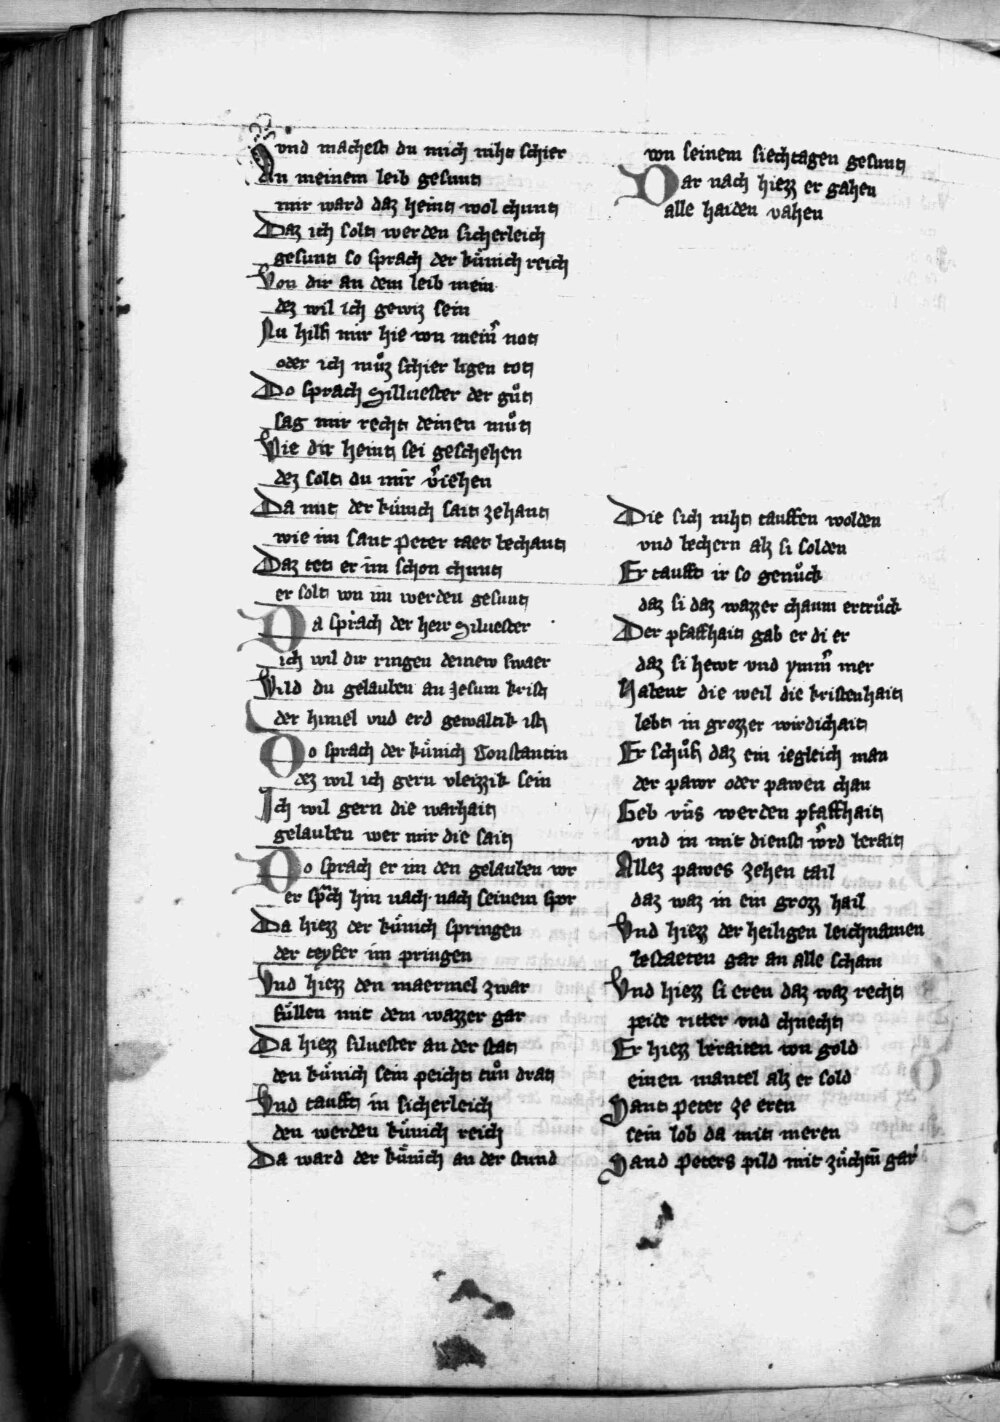 Vnd machest du mich niht schier
An meinem leib gesunt
mir ward daz heint wol chunt
Daz ich solt werden sicherleich
gesunt so sprach der kuͤnich reich
Von dir an dem leib mein
dez wil ich gewiz sein
Nu hilf mir hie von mein̄ not
oder ich muͦz schier ligen tot
Do sprach Silluester der guͦt
sag mir recht deinen muͦt
Wie dir heint sei geschehen
dez solt du mir v̓iehen
Da mit der kuͤnich sait zehant
wie im sant Peter taet bechant
Daz tet er im schon chunt
er solt von im werden gesunt
Da sprach der herr Siluester
ich wil dir ringen deinew swaer
Wild du gelauben an Jesum krist
der himel vnd erd gewaltik ist
Do sprach der kuͤnich Constantin
dez wil ich gern vleizzik sein
Ich wil gern die warhait
gelauben wer mir die sait
Do sprach er im den gelauben vor
er sp̄ch hin nach nach seinem spor
Da hiezz der kuͤnich springen
der teyfer im pringen
Vnd hiezz den maermel zwar
fuͤllen mit dem wazzer gar
Da hiezz siluester an der stat
den kuͤnich sein peicht tuͦn drat
Vnd taufft in sicherleich
den werden kuͤnich reich
Da ward der kuͤnich an der stund
von seinem siechtagen gesunt
Dar nach hiezz er gahen
alle haiden vahen
Die sich niht tauffen wolden
vnd bechern alz si solden
Er taufft ir so genuͦck
daz si daz wazzer chaum ertruͦck
Der pfaffhait gab er di er
daz si hewt vnd ymm̓ mer
Habent die weil die kristenhait
lebt in grozzer wirdichait
Er schuͦf daz ein iegleich man
der pawr oder pawen chan
Geb vns werden pfaffhait
vnd in mit dienst w̓rd berait
Allez pawes zehen tail
daz waz in ein grozz hail
Vnd hiezz der heiligen leichnamen
bestaeten gar an alle scham
Vnd hiezz si eren daz waz recht
peide ritter vnd chnecht
Er hiezz beraiten von gold
einen mantel alz er sold
Sant Peter ze eren
sein lob da mit meren
Sand Peters pild mit zuͤchtn̄ gar